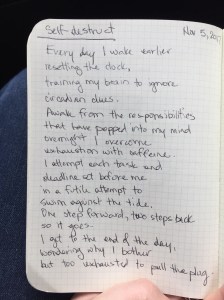 Self-destruct
Nov 5, 2017
Every day I wake earlier
resetting the clock,
training my brain to ignore
circadian clues.
Awake from the responsibilities
that have popped into my mind
overnight I overcome
exhaustion with caffeine.
I attempt each task and
deadline set before me
in a futile attempt to
swim against the tide.
One step forward, two steps back
so it goes.
I get to the end of the day,
wondering why I bother
but too exhausted to pull the plug.